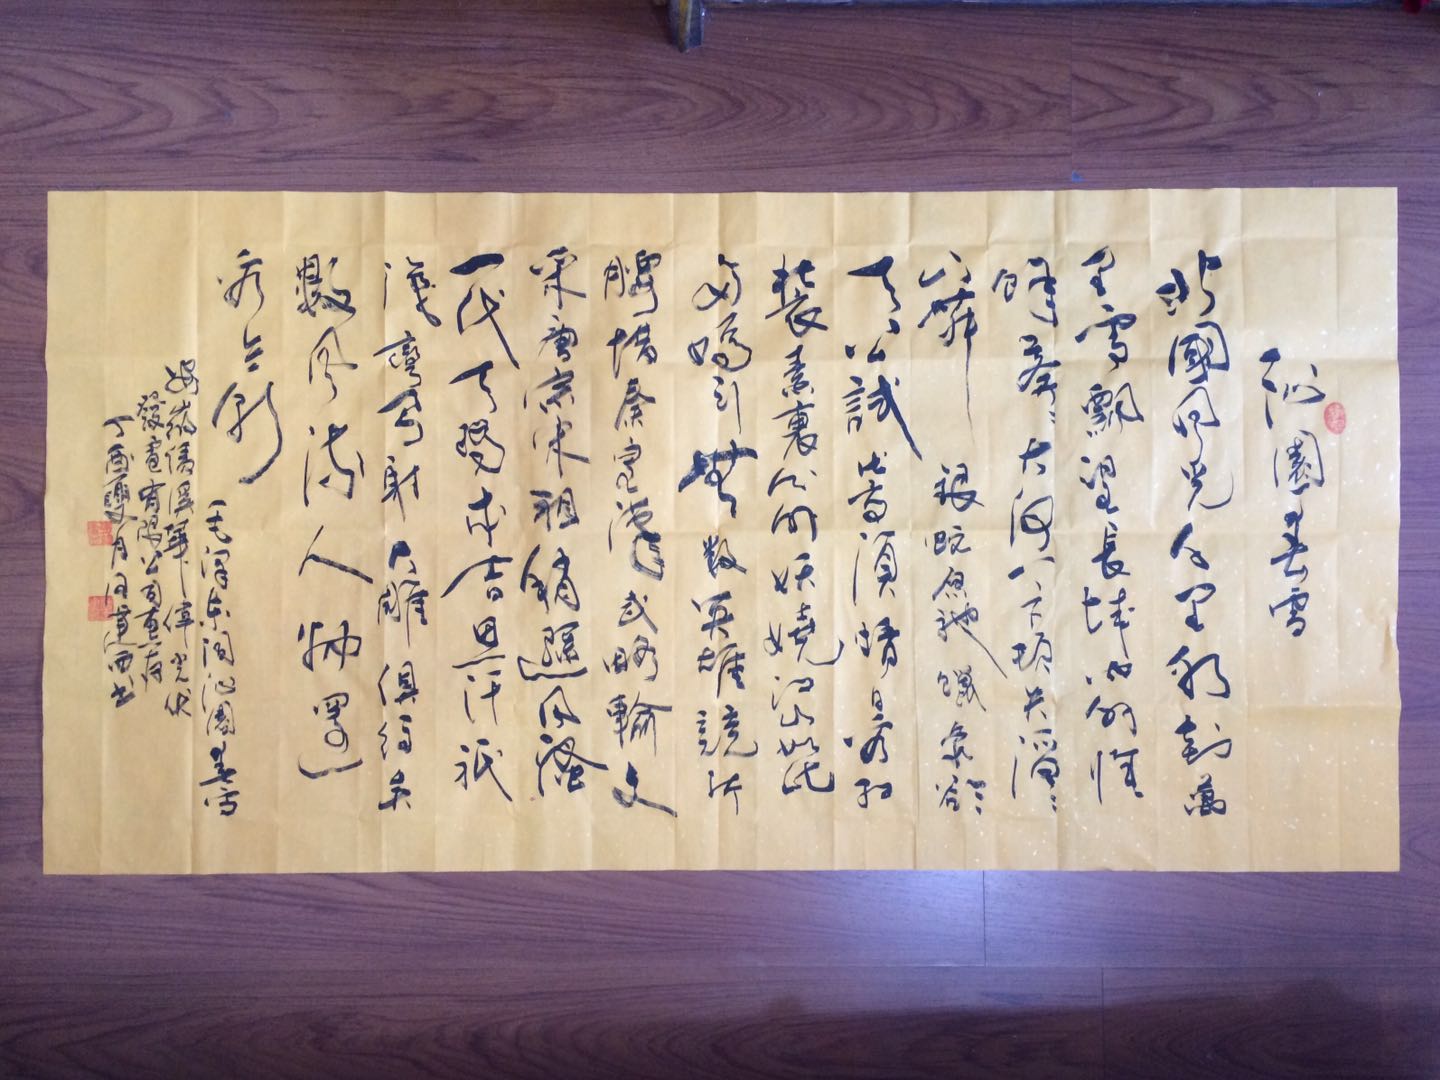 沁園春雪
北國風光千里冰封萬
里雪飄望長城内外惟
餘莽〻大河上下頓失滔〻
山舞銀蛇原馳蠟象欲
與天公試比高須晴日看紅
裝素裹分外妖嬈江山如此
多嬌引無數英雄競折
腰惜秦皇漢武略輸文
采唐宗宋祖稍遜風騷
一代天驕成吉思汗祇
識彎弓射大雕俱往矣
數風流人物還
看今朝
毛澤東詞沁園春雪
偉光伏
發電有限公司惠存
丁酉 月 西書